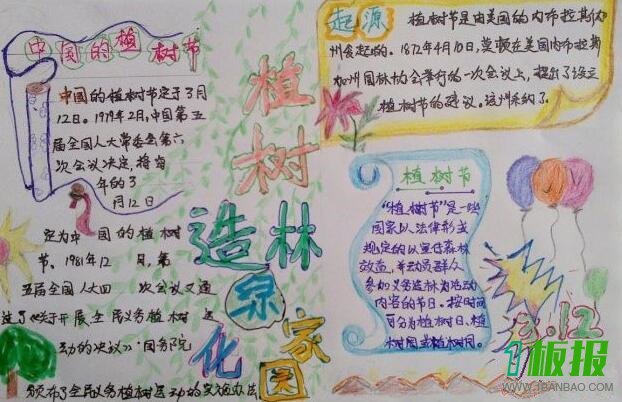 中国的植树节
中国的植树节定于3月
12日。1979年2月,中国第五
届全国人大常委会第六
次会议决定,将每
年的3
月12日
定为中国的植树
节、1981年12月,第
五届全国人大四次会议又通
过了《关于开展全民义务植树运
动的决议》·国务院
颁布了全民义务植树运动的实施办法
植树
造林
绿
化
家
园
起源
植树节是由美国的内布拉斯
州发起的。1872年4月10日,莫顿在美国内布拉斯
加州园林协会举行的一次会议上,提出了设立
植树节的建议。该州采纳了
植树节
“植树节”是一些
国家以法律形式
规定的以宣传森林
效益,并动员群众
参加义务造林为活动
内容的节日。按时间
可分为植树日、植
树周或植树月。
3.12
1板报
WWW.1BANBAO.COM